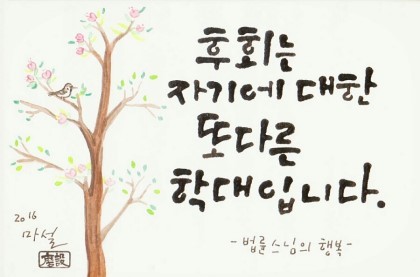 후회는
자기에 대한
또다른
학대입니다.
-법륜스님의 행복-
2016
마설